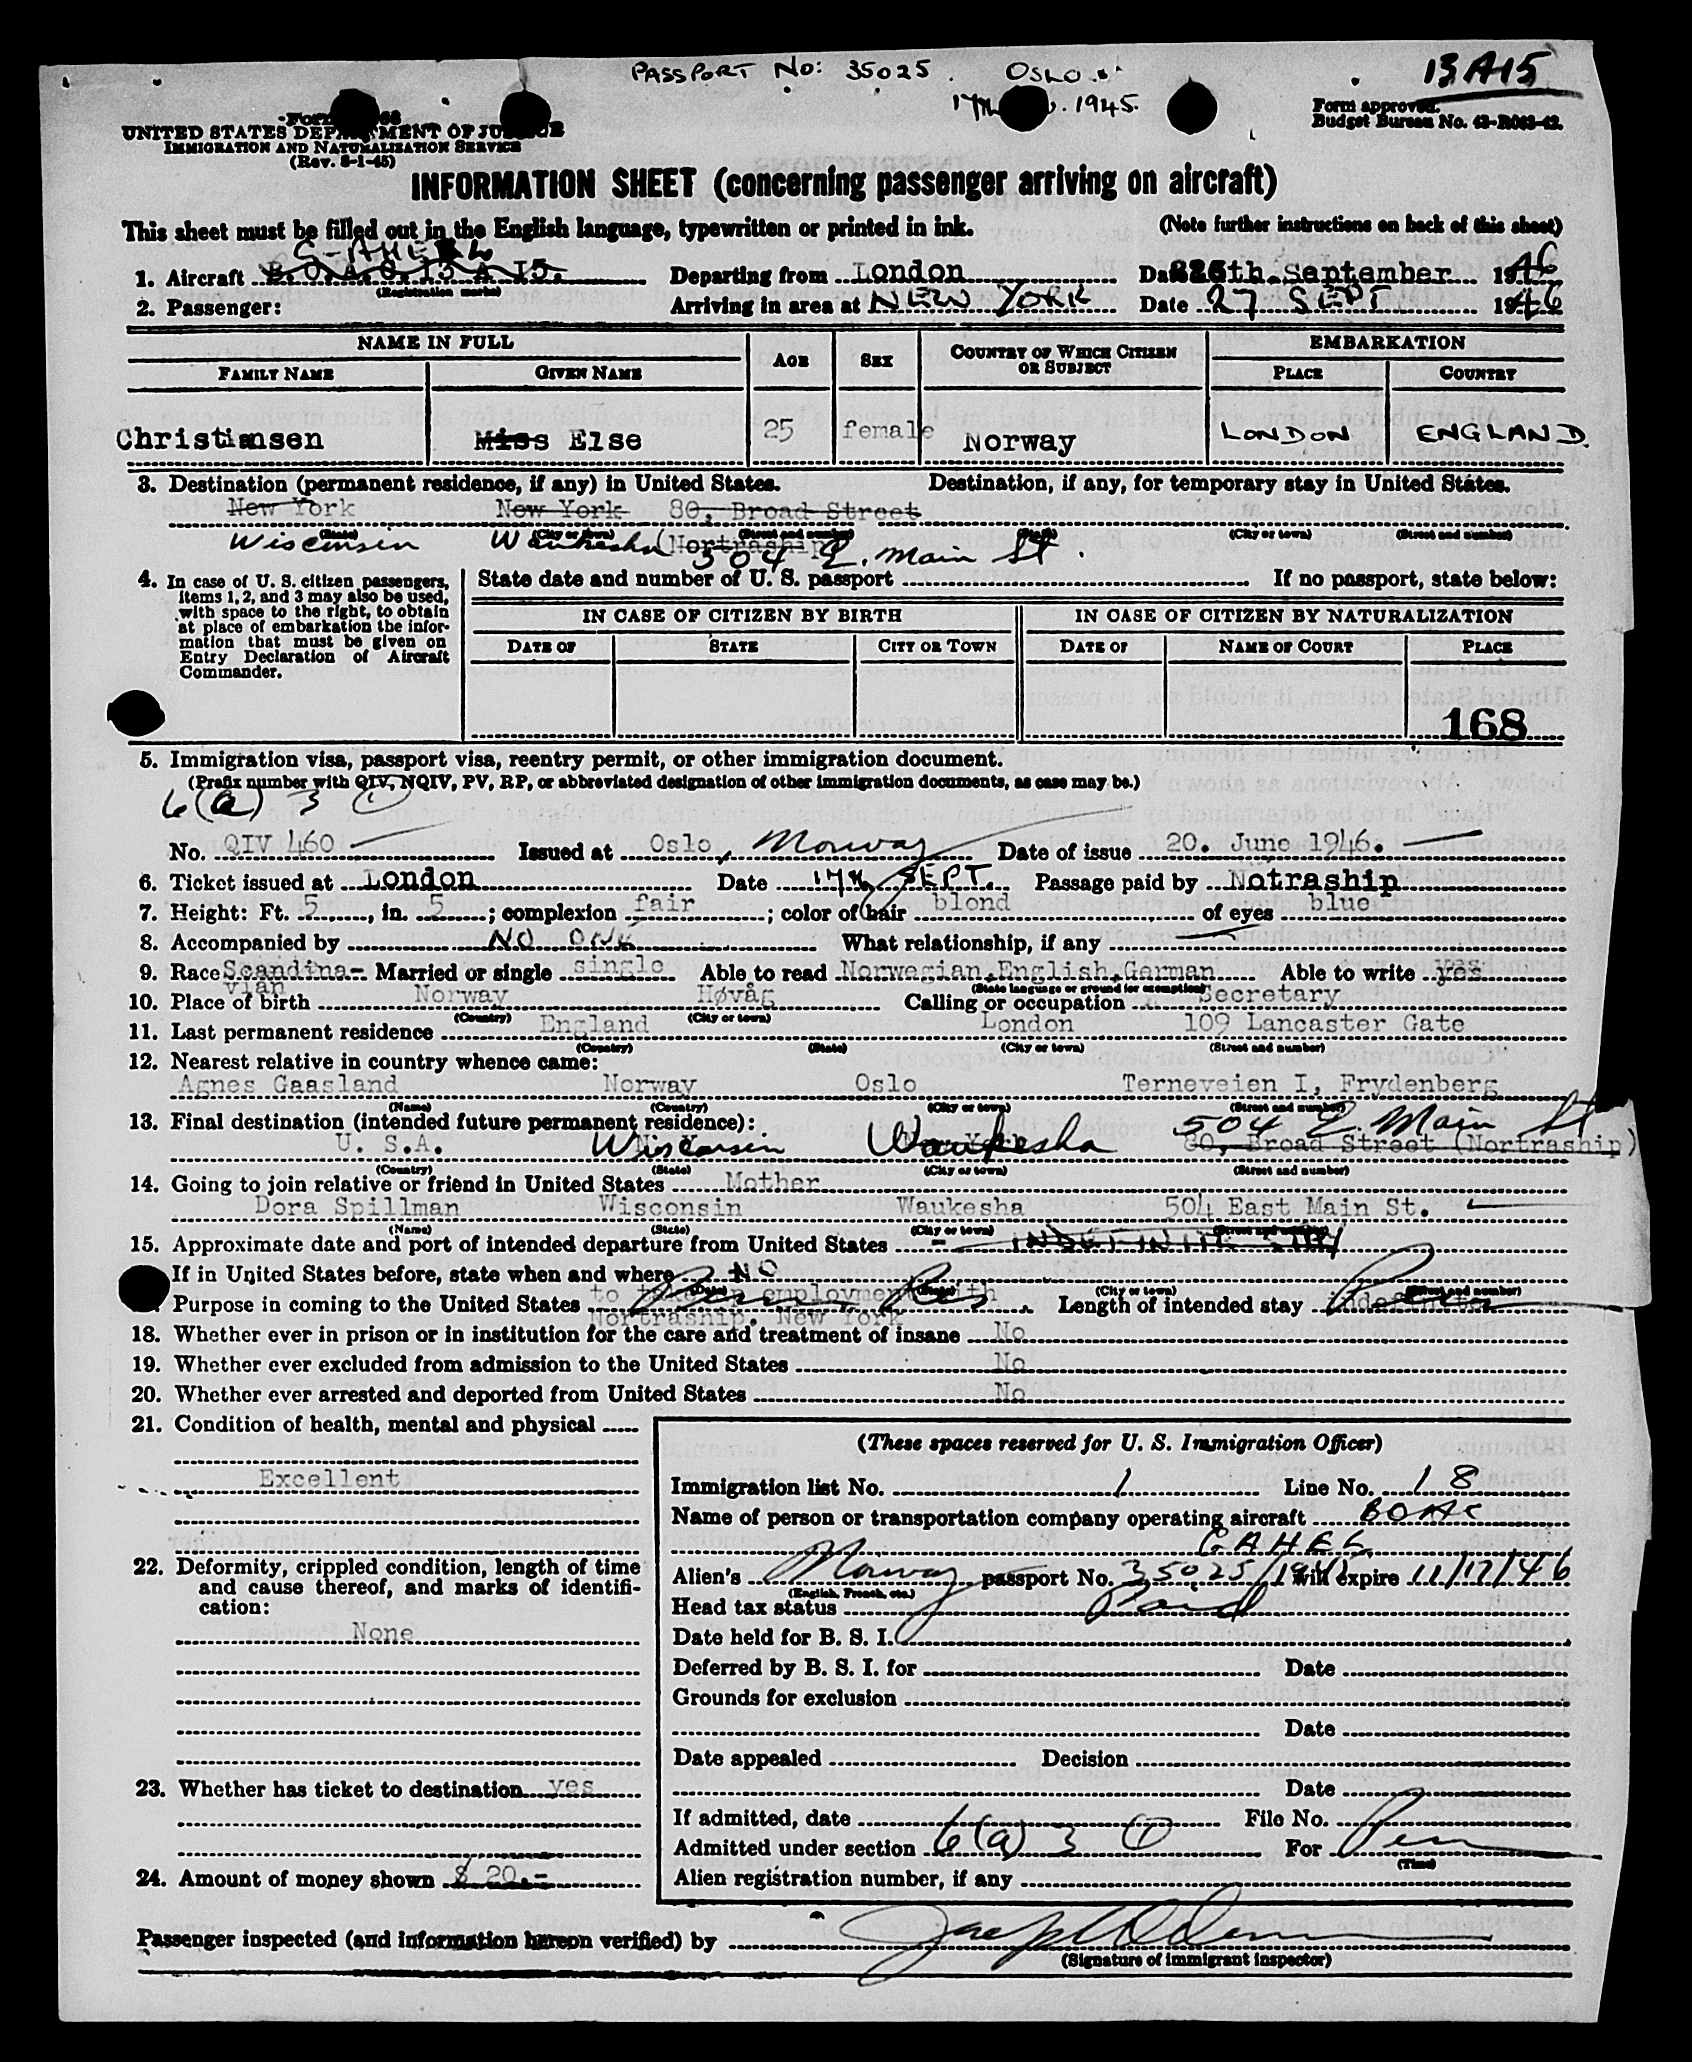 PASSPORT No: 35025. OSLO
13A15
17th 1945.
Form 66
UNITED STATES DEPARTMENT OF JUSTICE
IMMIGRATION AND NATURALIZATION SERVICE
(Rev. 8-1-45)
Form approved.
Budget Bureau No. 43-R063-42.
INFORMATION SHEET (concerning passenger arriving on aircraft)
This sheet must be filled out in the English language, typewritten or printed in ink. (Note further instructions on back of this sheet)
G-AHEL
1. Aircraft B.O.A.C. 13 A 15. Departing from London Date 26th September 1946
(Registration marks)
2. Passenger: Arriving in area at NEW YORK Date 27 SEPT 1946
NAME IN FULL AGE SEX COUNTRY OF WHICH CITIZEN OR SUBJECT EMBARKATION
FAMILY NAME GIVEN NAME PLACE COUNTRY
Christiansen Miss Else 25 female Norway LONDON ENGLAND.
3. Destination (permanent residence, if any) in United States. Destination, if any, for temporary stay in United States.
New York New York 80, Broad Street
(State) (City or town) (Street and number) (State) (City or town) (Street and number)
Wisconsin Waukesha (Nortraship) 504 E. Main St.
4. In case of U. S. citizen passengers, items 1, 2, and 3 may also be used, with space to the right, to obtain at place of embarkation the information that must be given on Entry Declaration of Aircraft Commander.
State date and number of U. S. passport If no passport, state below:
IN CASE OF CITIZEN BY BIRTH IN CASE OF CITIZEN BY NATURALIZATION
DATE OF STATE CITY OR TOWN DATE OF NAME OF COURT PLACE
168
5. Immigration visa, passport visa, reentry permit, or other immigration document.
(Prefix number with QIV, NQIV, PV, RP, or abbreviated designation of other immigration documents, as case may be.)
6(a) 3 (1)
No. QIV 460 Issued at Oslo, Norway Date of issue 20. June 1946.
6. Ticket issued at London Date 17th SEPT. Passage paid by Notraship
7. Height: Ft. 5, in. 5; complexion fair; color of hair blond of eyes blue
8. Accompanied by NO ONE What relationship, if any
9. Race Scandina- Married or single single Able to read Norwegian, English, German Able to write yes
vian (State language or ground for exemption)
10. Place of birth Norway Høvåg Calling or occupation Secretary
(Country) (City or town)
11. Last permanent residence England London 109 Lancaster Gate
(Country) (State) (City or town) (Street and number)
12. Nearest relative in country whence came:
Agnes Gaasland Norway Oslo Terneveien I, Frydenberg
(Name) (Country) (City or town) (Street and number)
13. Final destination (intended future permanent residence): 504 E. Main St
U. S.A. Wisconsin Waukesha 80, Broad Street (Nortraship)
(Country) (State) (City or town) (Street and number)
14. Going to join relative or friend in United States Mother
Dora Spillman Wisconsin Waukesha 504 East Main St.
(Name) (State) (City or town) (Street and number)
15. Approximate date and port of intended departure from United States - INDEFINITE STAY
If in United States before, state when and where NO
(Date) (State) (City or town) (Street and number)
Purpose in coming to the United States to take up employment with Length of intended stay indefinite
Nortraship, New York
18. Whether ever in prison or in institution for the care and treatment of insane No
19. Whether ever excluded from admission to the United States No
20. Whether ever arrested and deported from United States No
21. Condition of health, mental and physical
Excellent
22. Deformity, crippled condition, length of time and cause thereof, and marks of identification:
None
23. Whether has ticket to destination yes
24. Amount of money shown $ 20.-
(These spaces reserved for U. S. Immigration Officer)
Immigration list No. 1 Line No. 18
Name of person or transportation company operating aircraft BOAC
GAHEL
Alien's Norway passport No. 35025/1945 will expire 11/17/46
(English, French, etc.)
Head tax status Paid
Date held for B. S. I.
Deferred by B. S. I. for Date
Grounds for exclusion
Date
Date appealed Decision
Date
If admitted, date File No.
Admitted under section 6(a) 3 (1) For Perm
(Time)
Alien registration number, if any
Passenger inspected (and information hereon verified) by
(Signature of immigrant inspector)